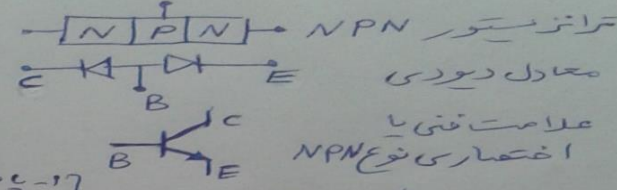 N P N ترانزیستور NPN
معادل دیودی
C E
B
علامت فنی یا
اختصاری نوع NPN
C
B
E